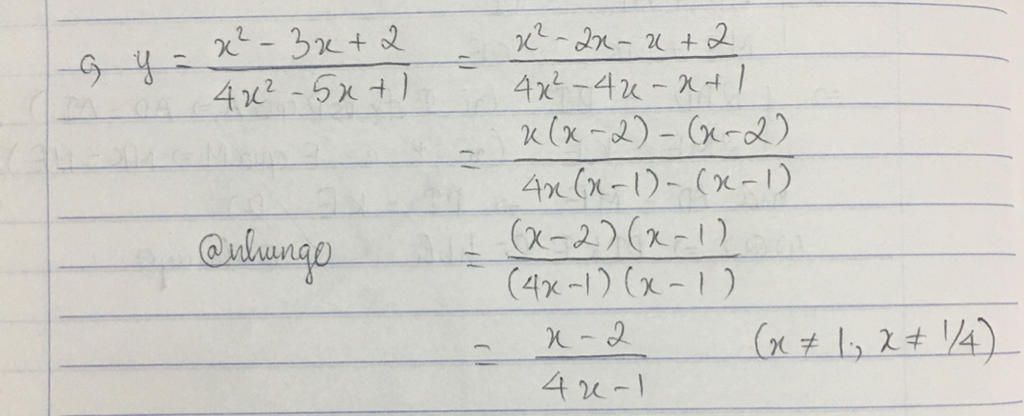 G y = x² - 3x + 2 / 4x² - 5x + 1 = x² - 2x - x + 2 / 4x² - 4x - x + 1
= x(x-2) - (x-2) / 4x(x-1) - (x-1)
@nhunge = (x-2)(x-1) / (4x-1)(x-1)
= x-2 / 4x-1 (x ≠ 1, x ≠ 1/4)